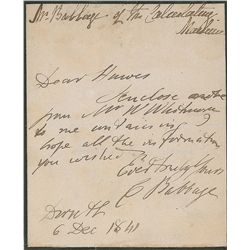 Mr Babbage of the Calculating
Machine
Dear Hawes
I enclose a note
from Mr W Whitmore
to me containing I
hope all the information
you wished
Ever truly Yours
C Babbage
Dorset St
6 Dec 1841